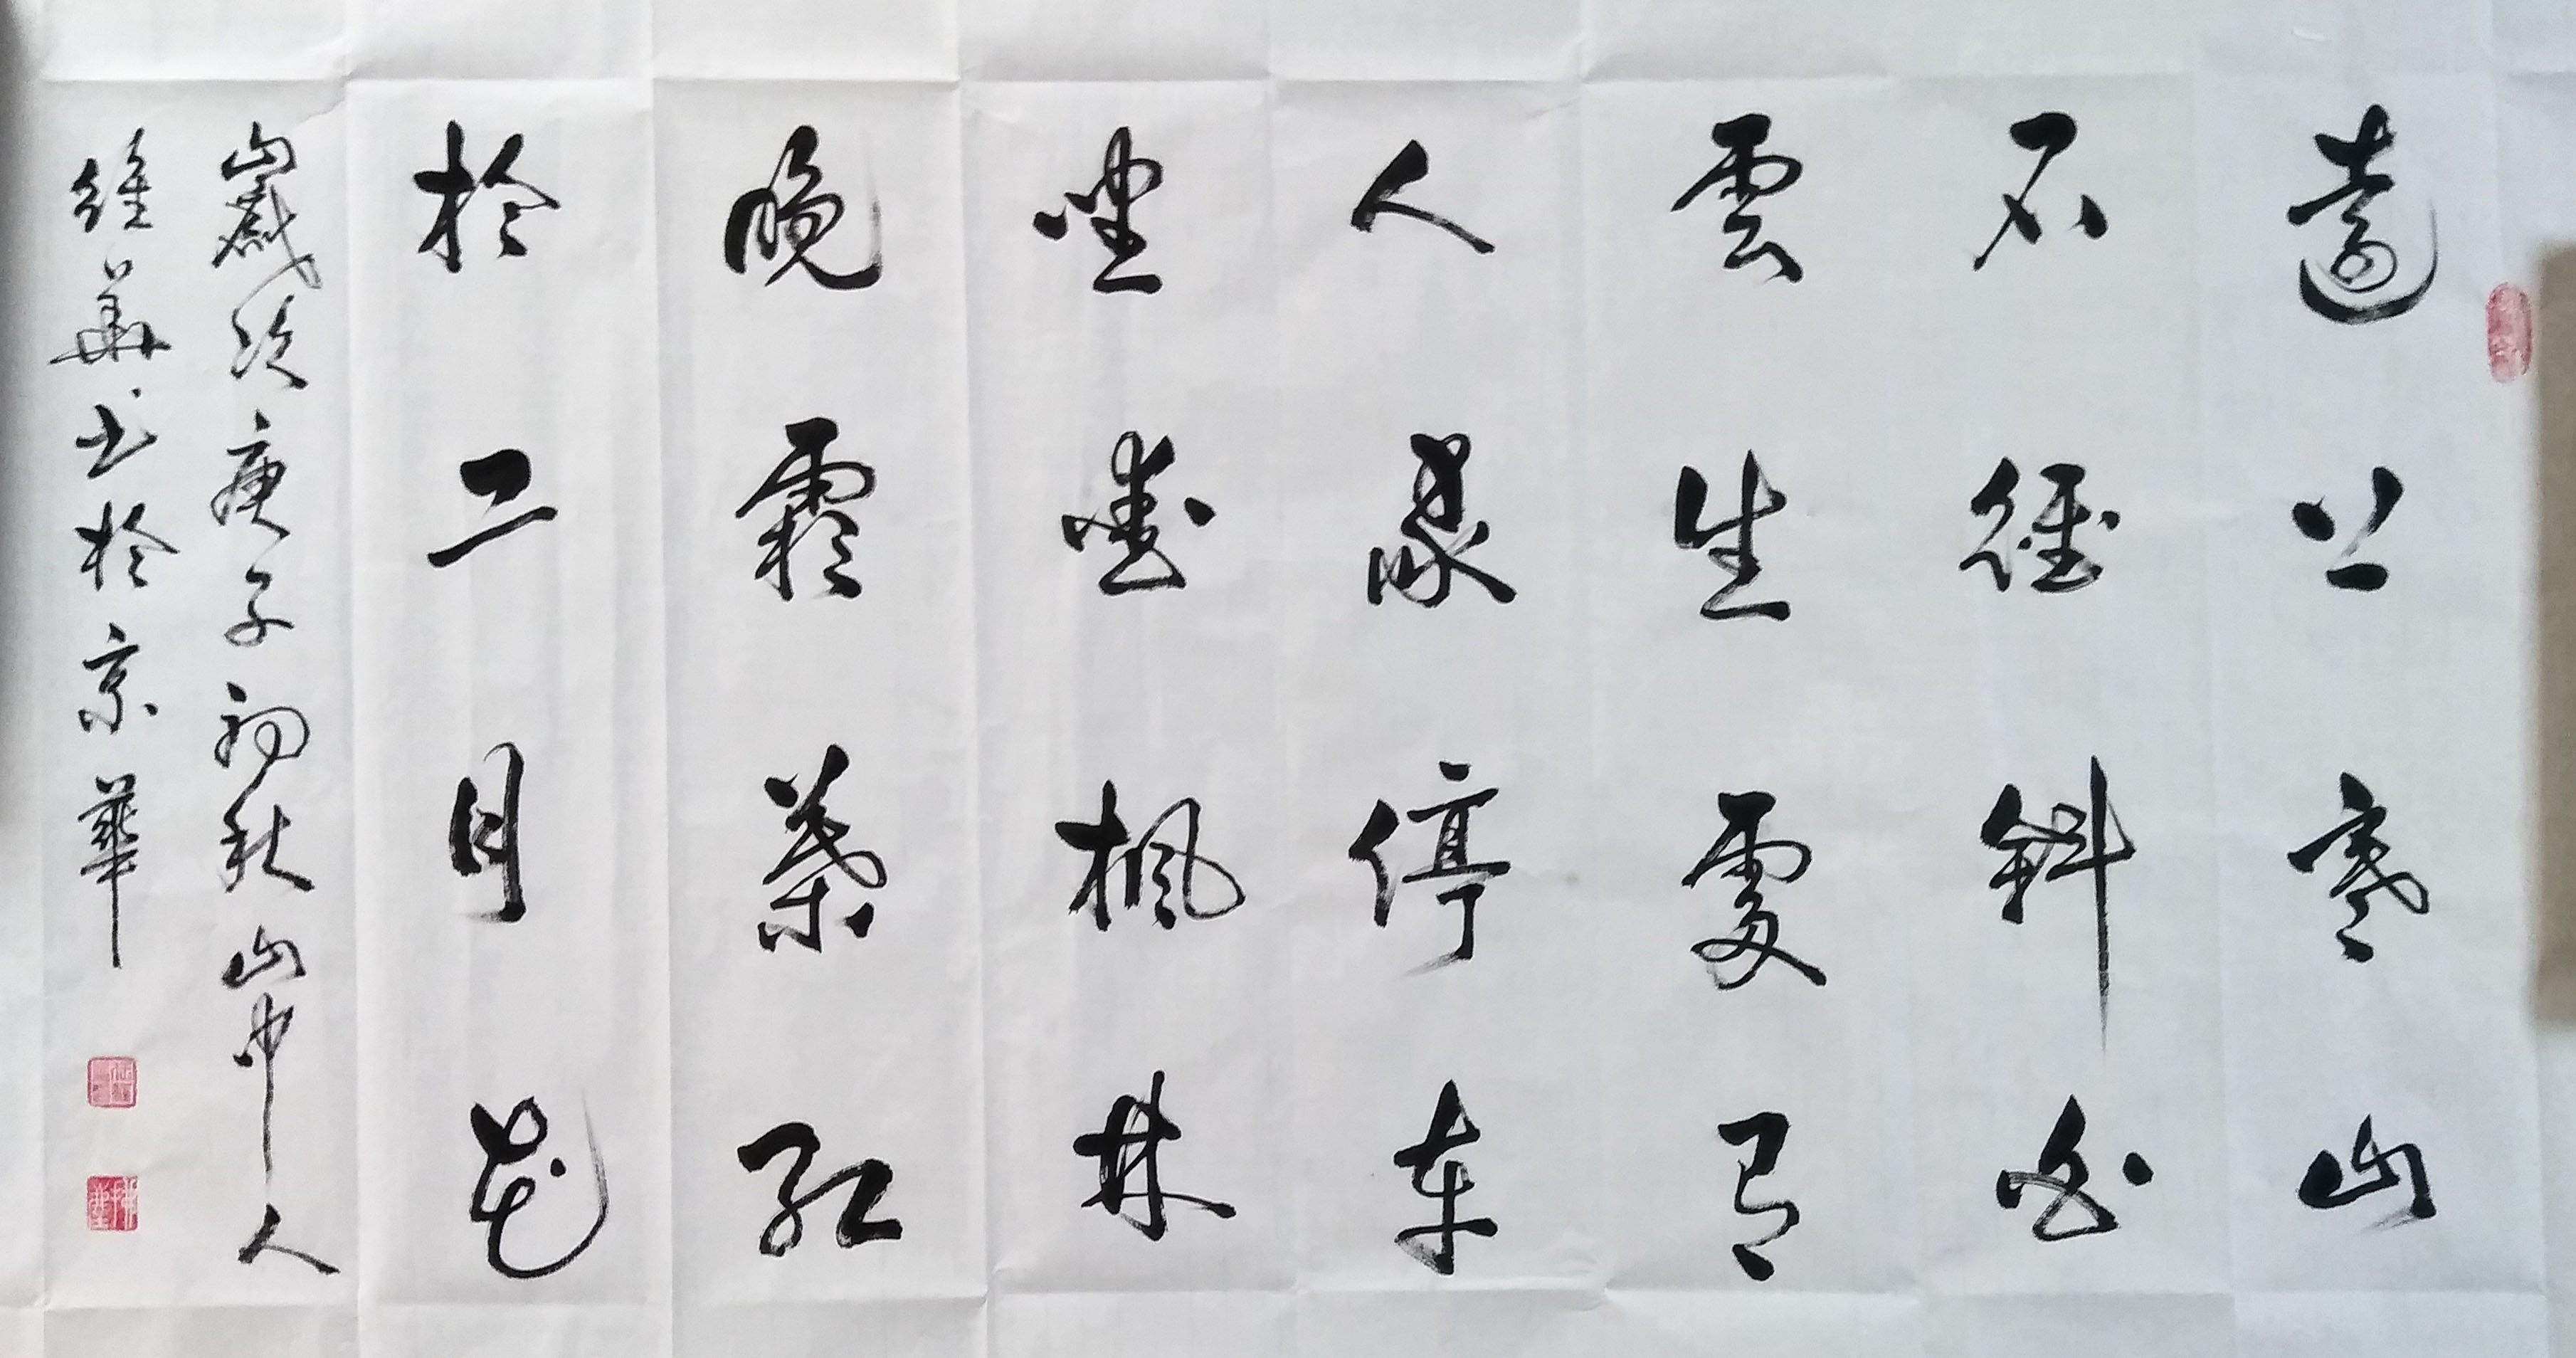 遠上寒山
石徑斜白
雲生處有
人家停車
坐愛楓林
晚霜葉紅
於二月花
歲次庚子初秋山中人
維書於京華